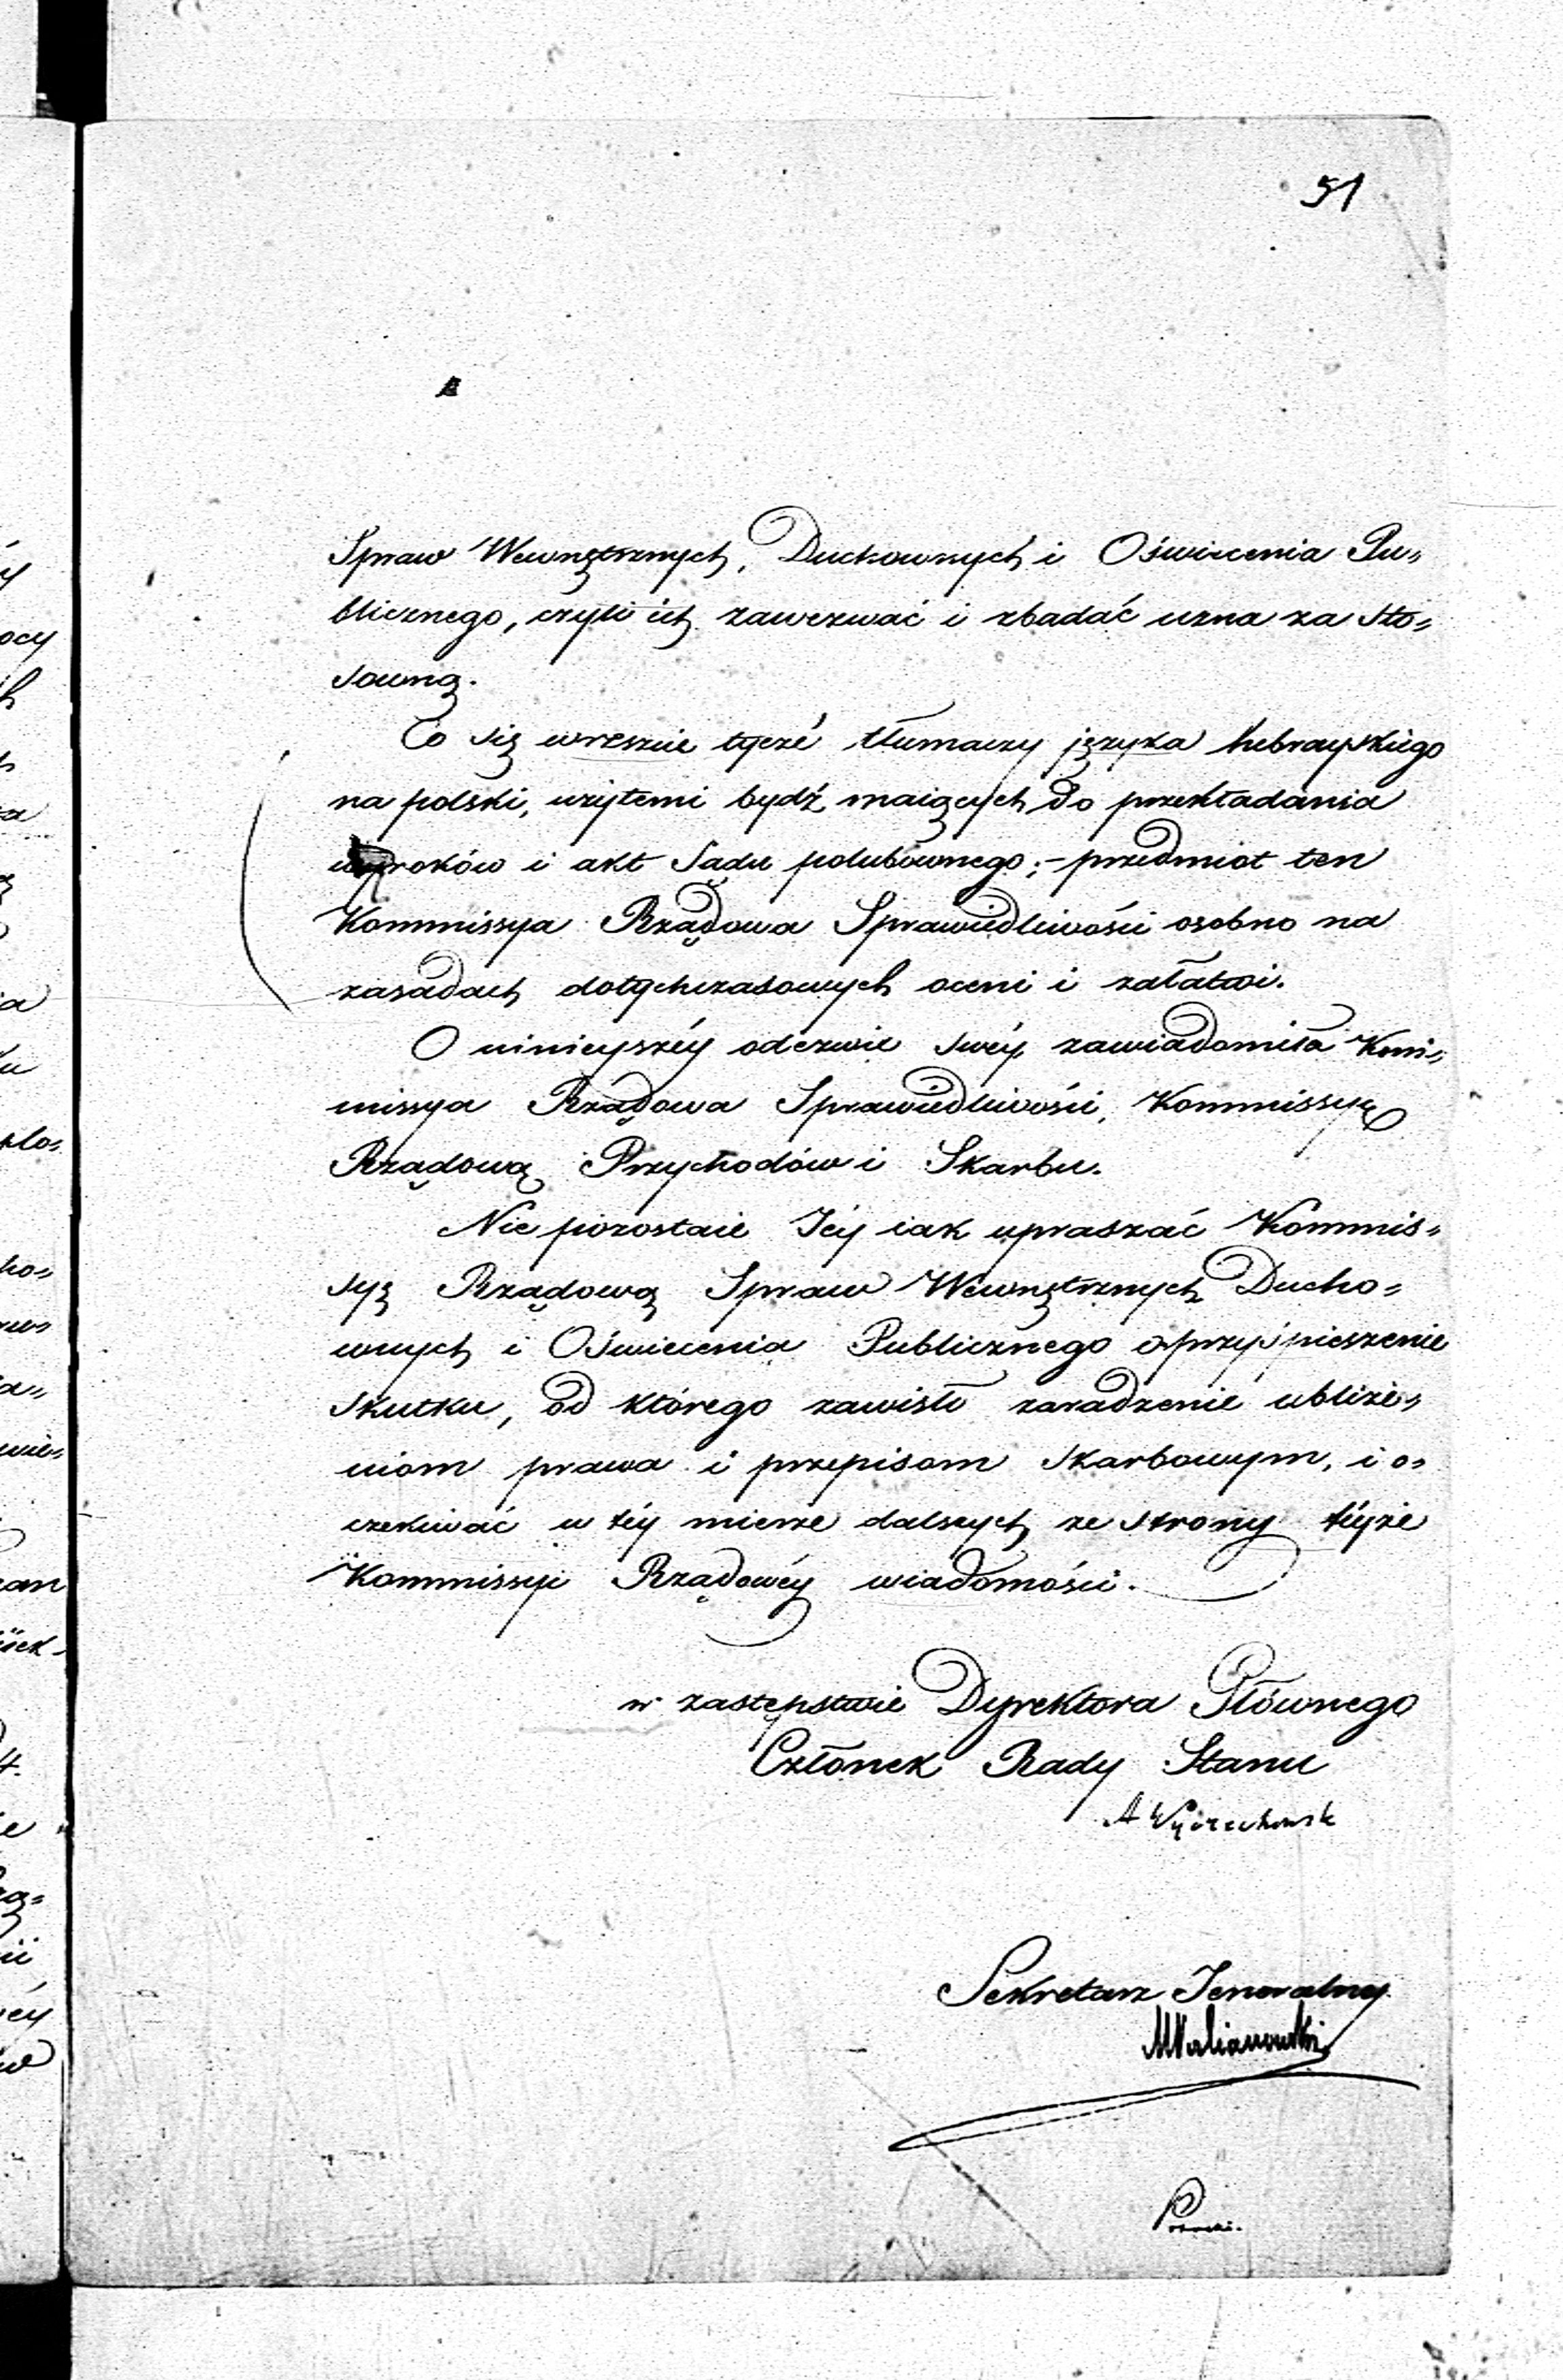 51
Spraw Wewnętrznych, Duchownych i Oświecenia Pu„
blicznego, czyli ich zawezwać i zbadać uzna za sto„
sowną.
Co się wreszcie tyczé tłumaczy języka hebrayskiego
na polski, użytemi bydź maiących do przekładania
wyroków i akt Sądu polubownego; – przedmiot ten
Kommissya Rządowa Sprawiedliwości osobno na
zasadach dotychczasowych oceni i załatwi.
O ninieyszéy odezwie swéy zawiadomiła Kom„
missya Rządowa Sprawiedliwości, Kommissyę
Rządową Przychodów i Skarbu.
Nie pozostaie Jéy iak upraszać Kommis„
syę Rządową Spraw WewnętrznychDucho„
wnych i Oświecenia Publicznego o przyśpieszenie
skutku, od którego zawisło zaradzenie ubliże„
niom prawa i przepisom skarbowym, i o„
czekiwać w téy mierze dalszych ze strony téyże
Kommissyi Rządowéy wiadomości.
w zastępstwie Dyrektora Głównego
Członek Rady Stanu
A Wyczechowsk
Sekretarz Jeneralny